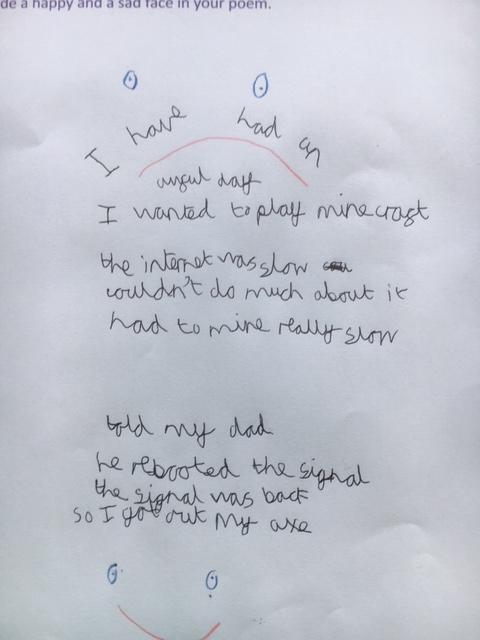 de a happy and a sad face in your poem.
I have had an
awful day
I wanted to play minecraft
the internet was slow
couldn't do much about it
had to mine really slow
told my dad
he rebooted the signal
the signal was back
so I got out my axe